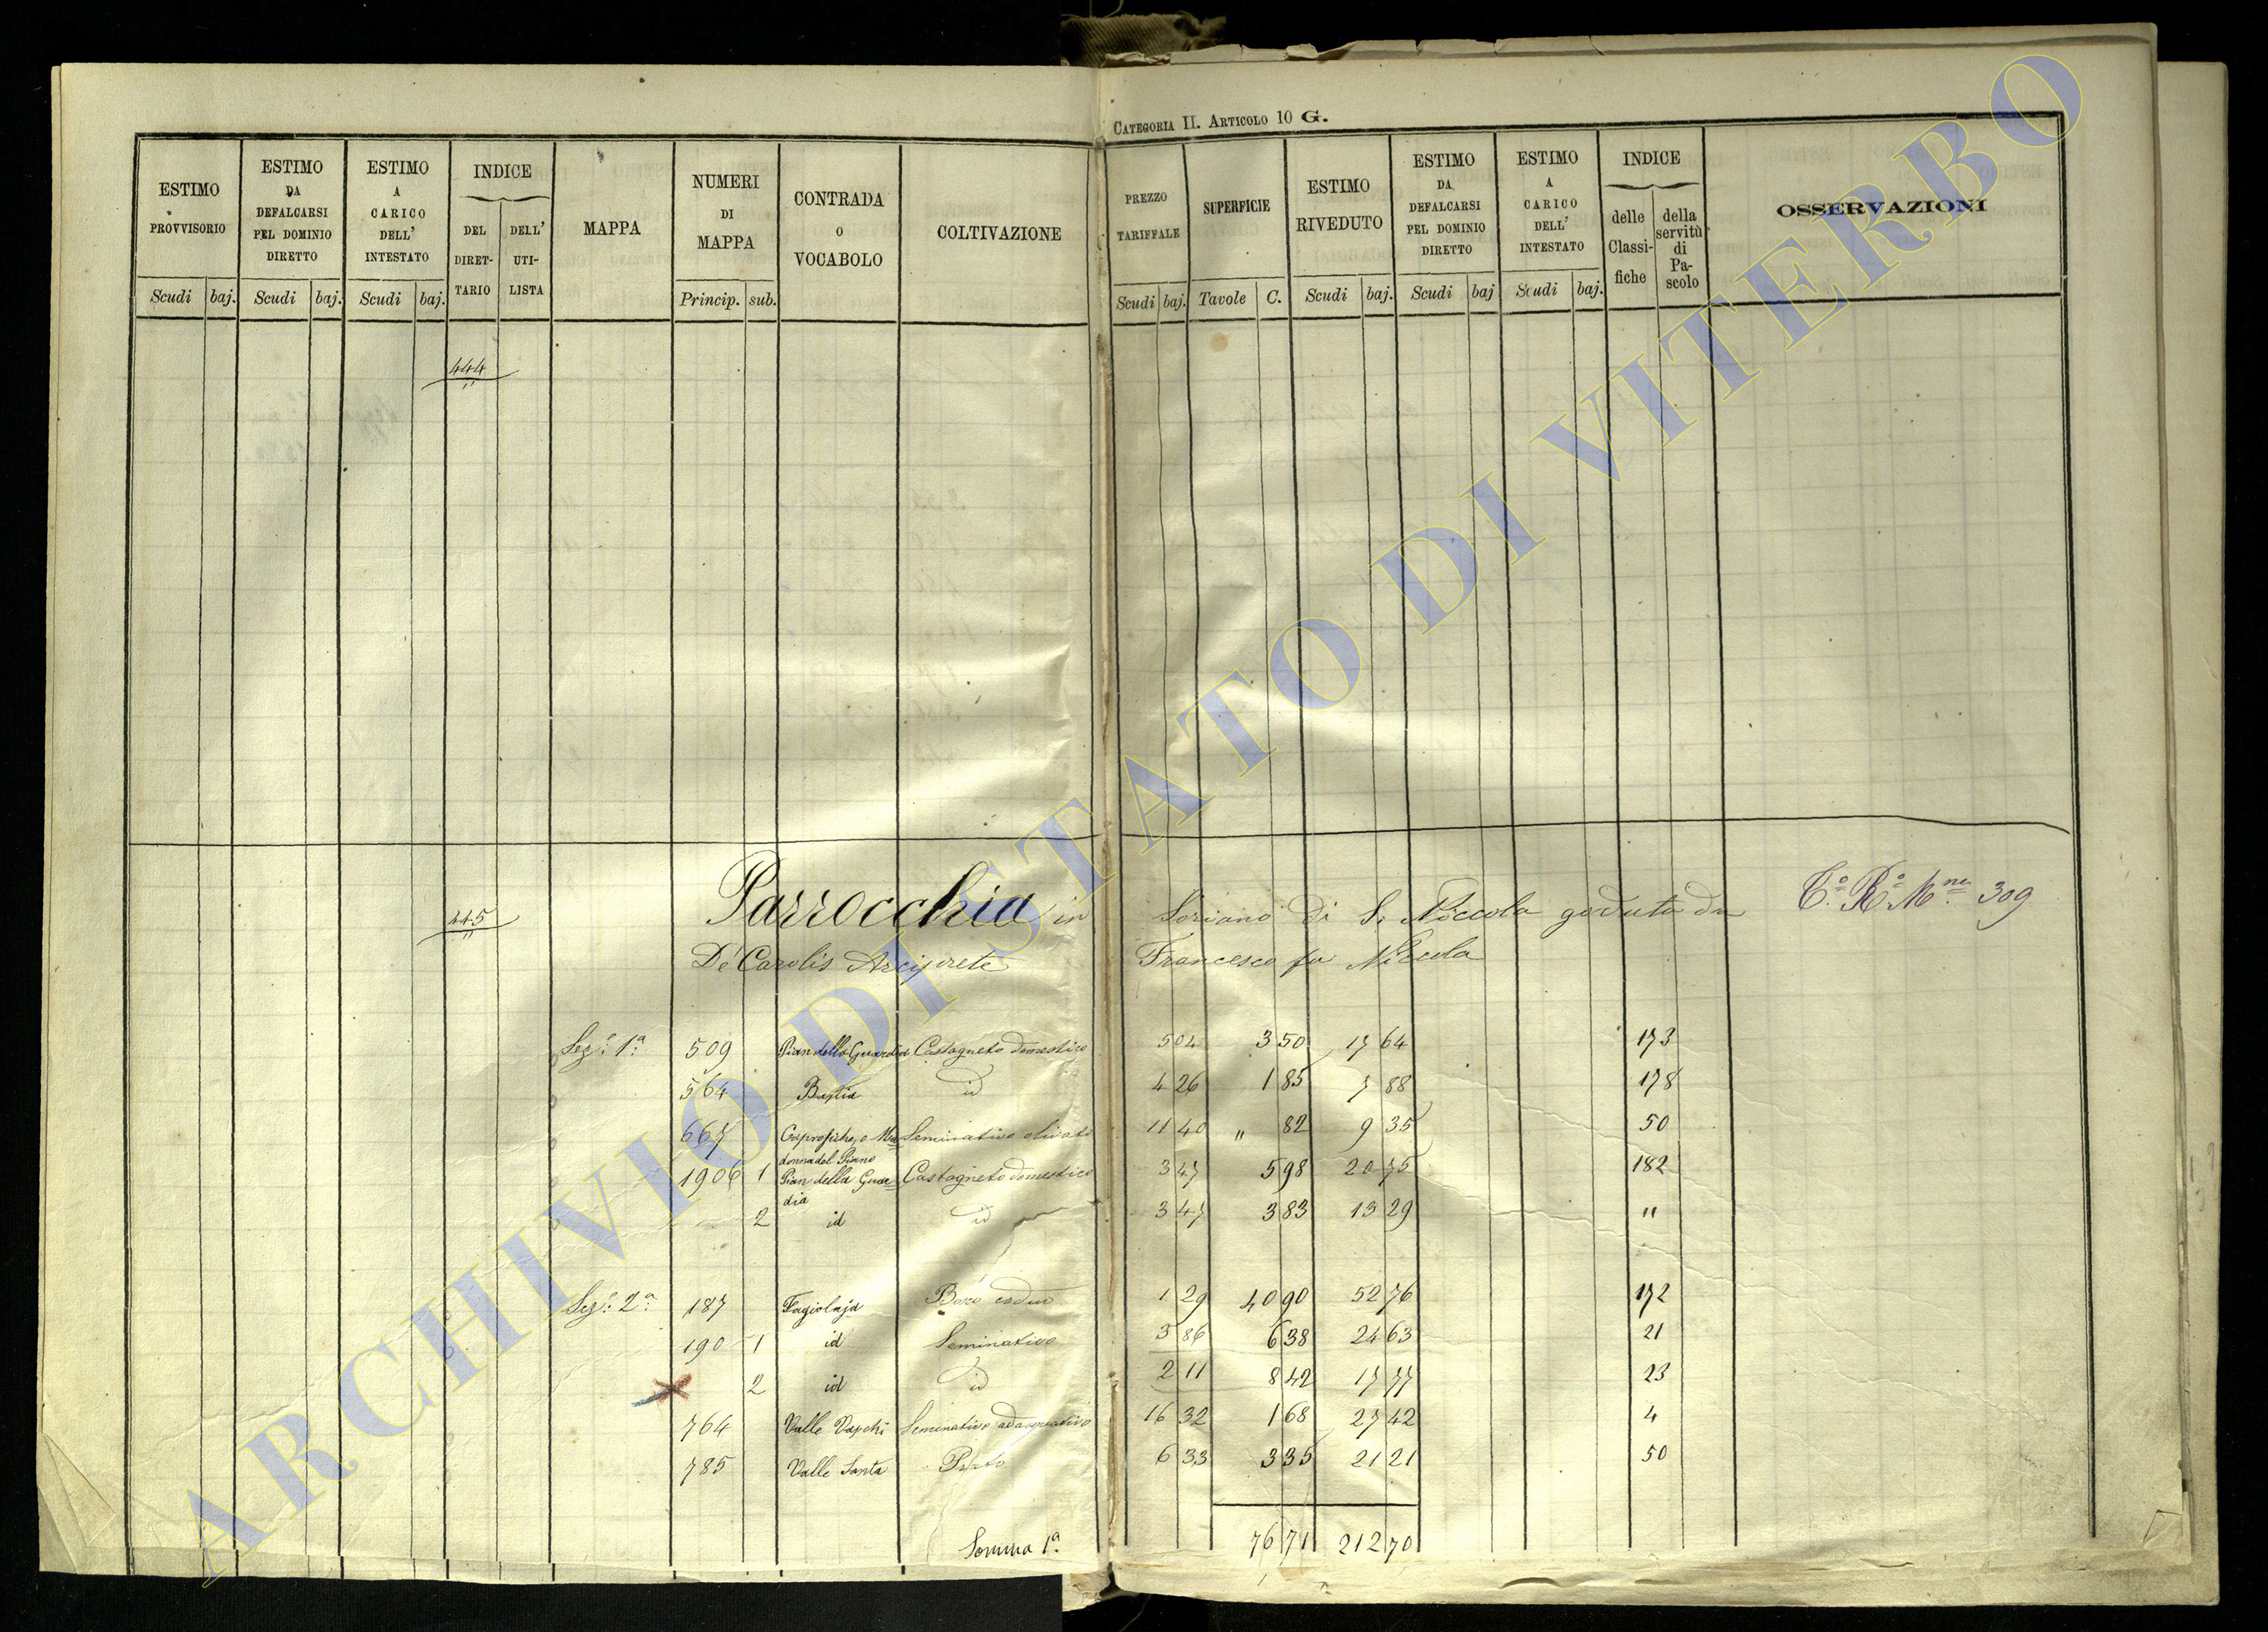 CATEGORIA II. ARTICOLO 10 G.
ESTIMO PROVVISORIO
Scudi baj.
ESTIMO DA DEFALCARSI PEL DOMINIO DIRETTO
Scudi baj.
ESTIMO A CARICO DELL' INTESTATO
Scudi baj.
INDICE
DEL DIRET-TARIO
DELL' UTI-LISTA
MAPPA
NUMERI DI MAPPA
Princip. sub.
CONTRADA O VOCABOLO
COLTIVAZIONE
PREZZO TARIFFALE
Scudi baj.
SUPERFICIE
Tavole C.
ESTIMO RIVEDUTO
Scudi baj.
ESTIMO DA DEFALCARSI PEL DOMINIO DIRETTO
Scudi baj
ESTIMO A CARICO DELL' INTESTATO
Scudi baj.
INDICE
delle Classi-fiche
della servitù di Pa-scolo
OSSERVAZIONI
444
"
445
"
Parrocchia in Soriano di S. Niccola goduta da
De Carolis Arciprete Francesco fu Niccola
C.º R.º M.ne 309
Sez.e 1ª 509 Pian della Guardia Castagneto domestico 5 04 3 50 17 64 173
564 Bastia id 4 26 1 85 7 88 178
667 Caprofico, o Ma= Seminativo olivato 11 40 " 82 9 35 50
donna del Piano
1906 1 Pian della Guar= Castagneto domestico 3 47 5 98 20 75 182
dia
2 id id 3 47 3 83 13 29 "
Sez.e 2ª 187 Fagiolaja Bosco ceduo 1 29 40 90 52 76 172
190 1 id Seminativo 3 86 6 38 24 63 21
2 id id 2 11 8 42 17 77 23
764 Valle Seminativo adacquativo 16 32 1 68 27 42 4
785 Valle Santa Prato 6 33 3 35 21 21 50
Somma 1ª 76 71 212 70
ARCHIVIO DI STATO DI VITERBO